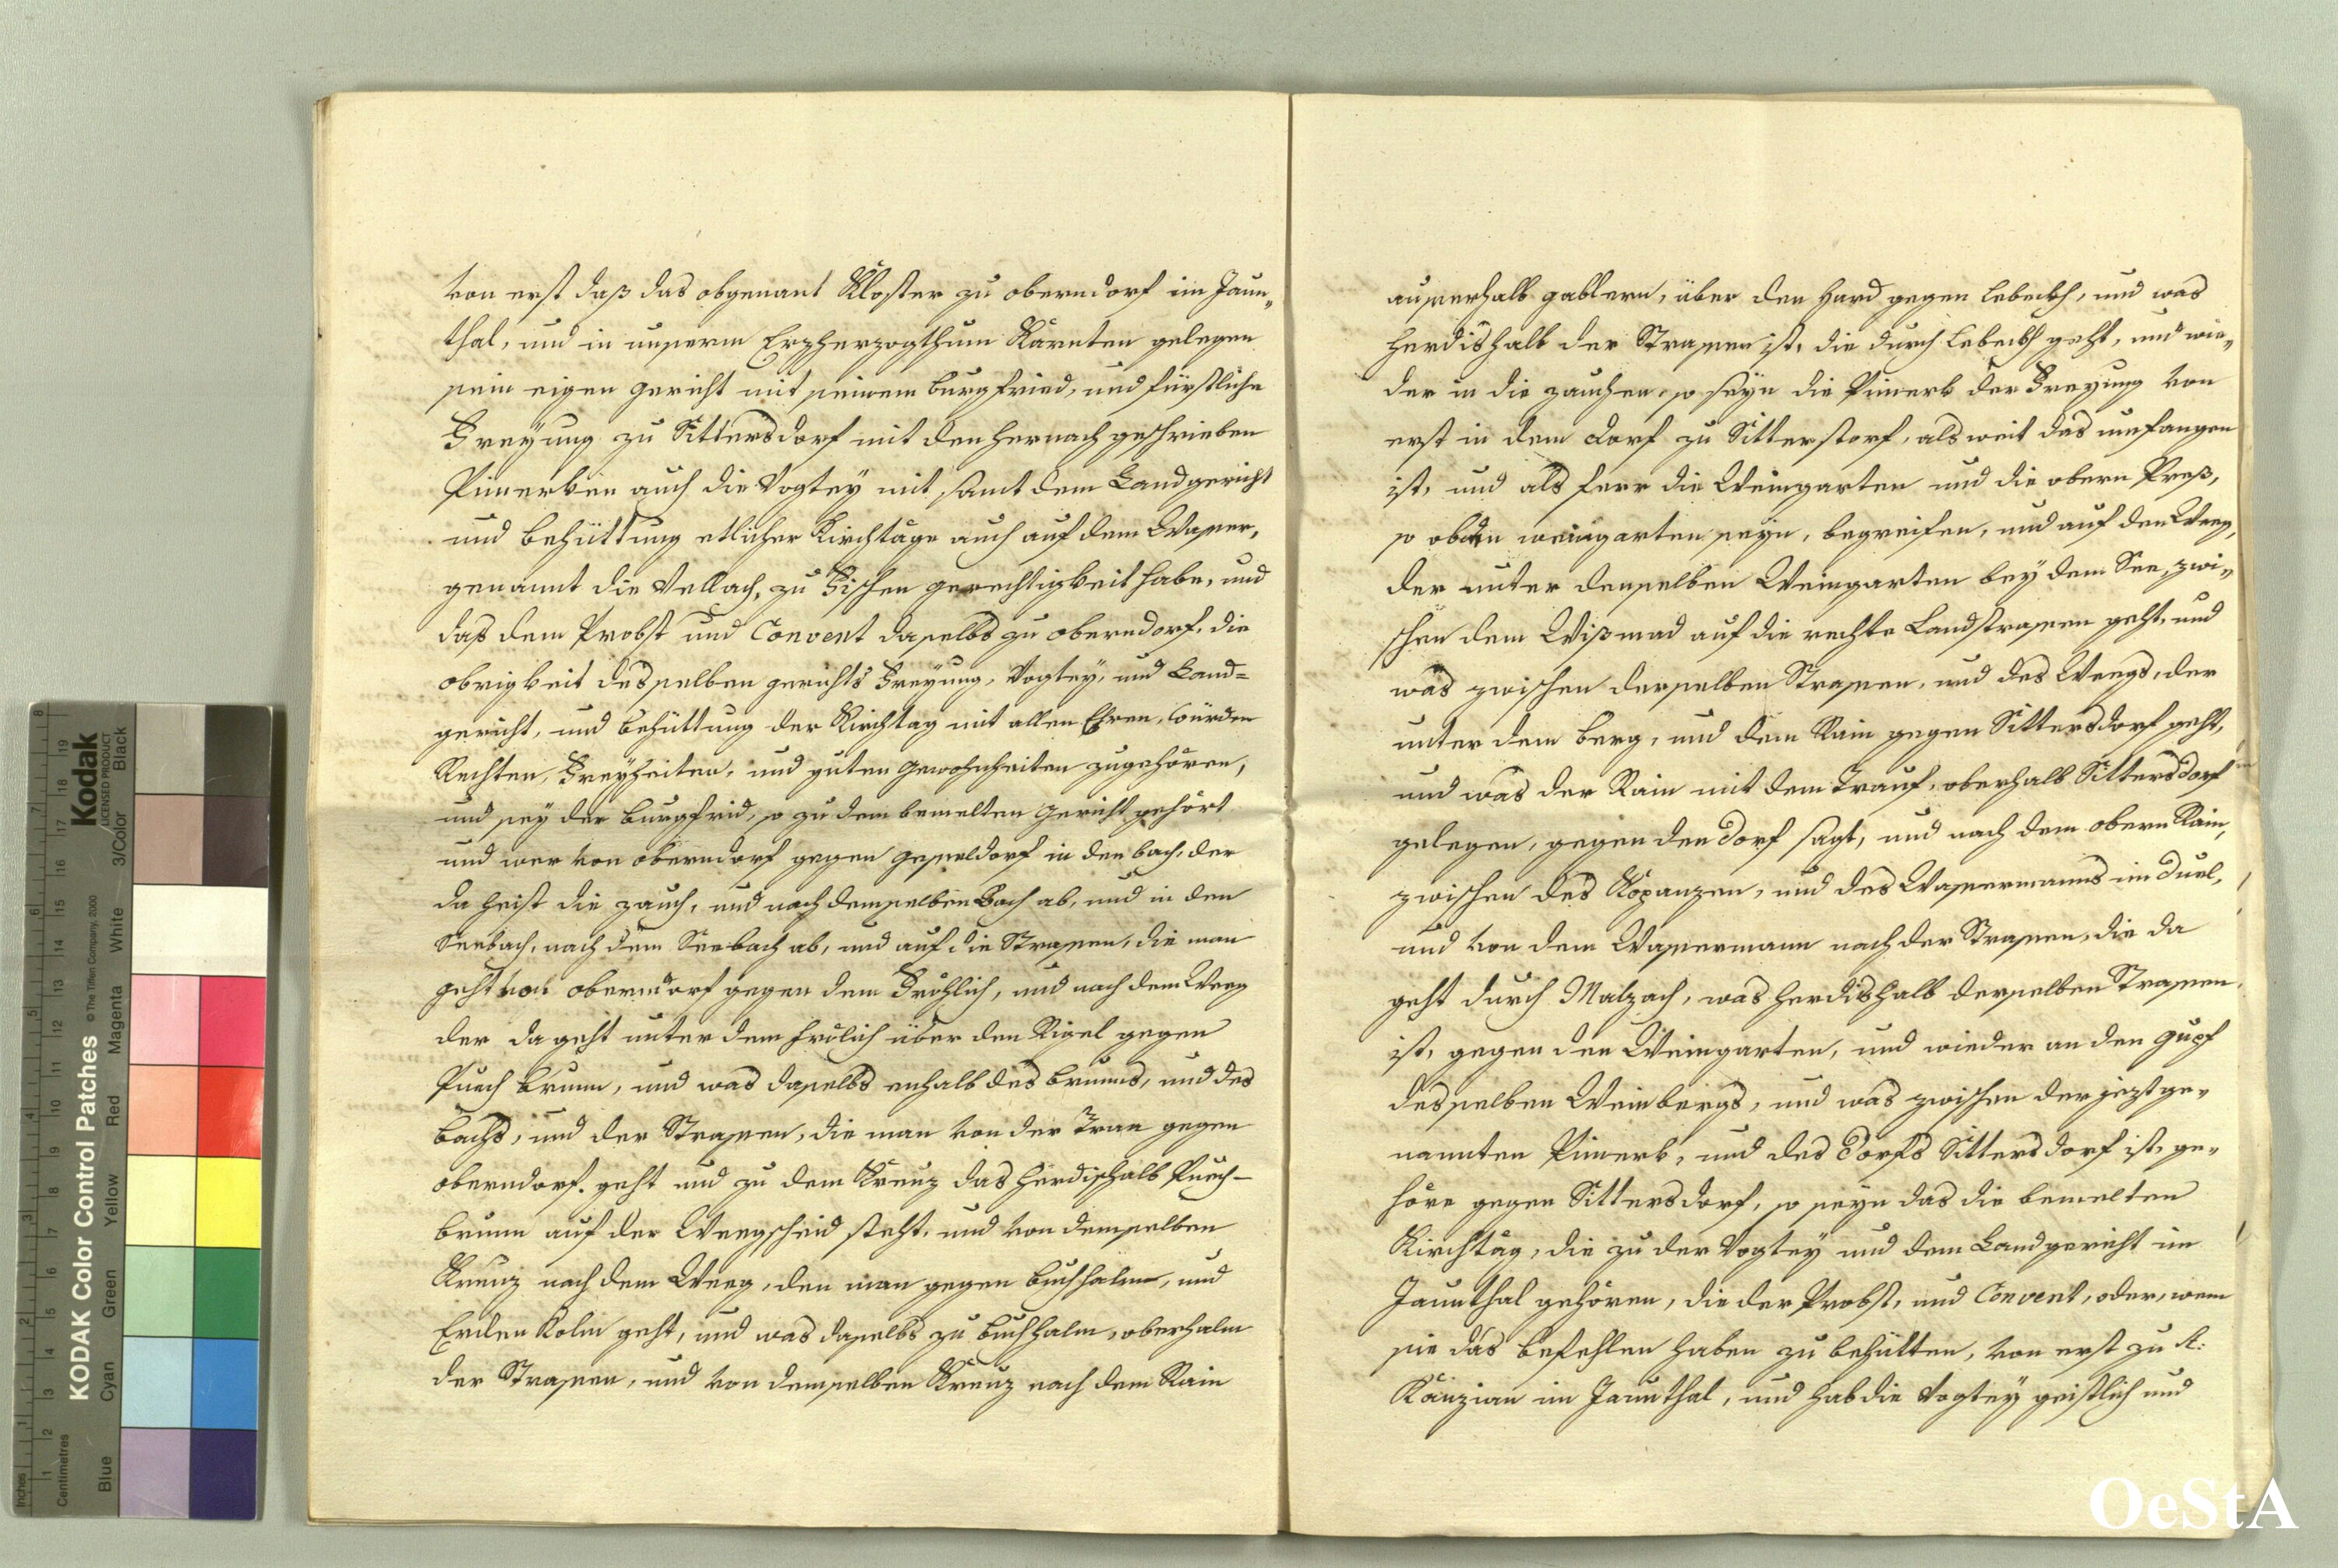 von erst daß das obgenant Kloster zu oberndorf im Jaun„
thal, und in unserm Erzherzogthum Kärnten gelegen
sein eigen gericht mit seinem burgfried, und fürstliche
Freyung zu Sittersdorf mit den hernach geschrieben
Pimerken auch die Vogtey mit samt dem Landgericht
und behüttung etlicher Kirchtäge auch auf dem Wasser,
genannt die Vellach, zu Fischen gerechtigkeit habe, und
das dem Probst und Convent daselbs zu oberndorf, die
obrigkeit desselben gerichts Freyung, Vogtey, und Land=
gericht, und behüttung der Kirchtag mit allen Ehren, würden
Rechten, Freyheiten, und guten gewohnheiten zugehören,
und sey der burgfrid, so zu dem bemelten gericht gehört
und wer von oberndorf gegen gesseldorf in den bach, der
da heist die zauch, und nach demselben Bach ab, und in den
Seebach, nach dem Seebach ab, und auf die Strassen, die man
geht von oberndorf gegen dem Fröhlich, und nach dem Weeg
der da geht unter dem frölich über den Rigel gegen
Puech brunn, und was daselbs enhalb des brunns, und des
bachs, und der Strassen, die man von der Traa gegen
oberndorf geht und zu dem Kreuz das herdishalb Puech-
brunn auf der Weegscheid steht, und von demselben
Kreuz nach dem Weeg, den man gegen buchhalm, und
Erlen Kolm geht, und was daselbs zu buchhalm, oberhalm
der Strassen, und von demselben Kreuz nach dem Rain
ausserhalb gablern, über den hard gegen Lebeckh, und was
herdishalb der Strassen ist, die durch Lebeckh geht, und wie„
der in die zauchen, so seyn die Pimerk der Freyung von
erst in dem dorf zu Sitterstorf, als weit das umfangen
ist, und als ferr die Weingarten und die obern Preß,
so ob den weingarten seyn, begreifen, und auf den Weeg,
der unter denselben Weingarten bey dem See, zwi„
schen dem Wißmad auf die rechte Landstrassen geht, und
was zwischen derselben Strassen, und des Weegs, der
unter dem berg, und dem Rain gegen Sittersdorf geht,
und was der Rain mit dem Trauf, oberhalb Sittersdorf
gelegen, gegen den dorf sagt, und nach dem obern Rain,
zwischen des Kopanzen, und des Wassermanns im duel,
und von dem Wassermann nach der Strassen, die da
geht durch Malzach, was herdishalb derselben Strassen
ist, gegen den Weingarten, und wieder an den gupf
desselben Weinbergs, und was zwischen der jezt ge„
nannten Pimerk, und des Dorfs Sittersdorf ist, ge„
höre gegen Sittersdorf, so seyn das die bemelten
Kirchtäg, die zu der Vogtey und dem Landgericht im
Jaunthal gehören, die der Probst, und Convent, oder, wem
sie das befehlen haben zu behütten, von erst zu St:
Känzian im Jaunthal, und hab die Vogtey geistlich und
KODAK Color Control Patches
© The Tiffen Company, 2000
Kodak
LICENSED PRODUCT
Inches
Centimetres
Blue
Cyan
Green
Yellow
Red
Magenta
White
3/Color
Black
OeStA